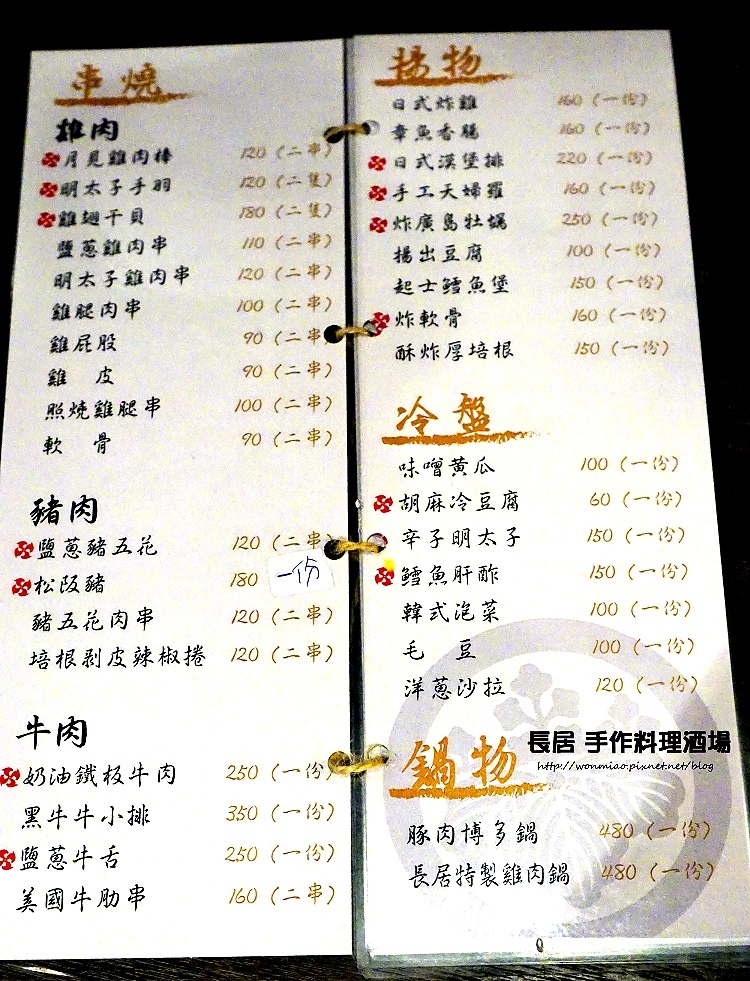 串燒
雞肉
月見雞肉棒 120 (二串)
明太子手羽 120 (二隻)
雞翅干貝 180 (二隻)
鹽蔥雞肉串 110 (二串)
明太子雞肉串 120 (二串)
雞腿肉串 100 (二串)
雞屁股 90 (二串)
雞 皮 90 (二串)
照燒雞腿串 100 (二串)
軟 骨 90 (二串)
豬肉
鹽蔥豬五花 120 (二串)
松阪豬 180 一份
豬五花肉串 120 (二串)
培根剥皮辣椒捲 120 (二串)
牛肉
奶油鐵板牛肉 250 (一份)
黑牛牛小排 350 (一份)
鹽蔥牛舌 250 (一份)
美國牛肋串 160 (二串)
揚物
日式炸雞 160 (一份)
章魚香腸 160 (一份)
日式漢堡排 220 (一份)
手工天婦羅 160 (一份)
炸廣島牡蠣 250 (一份)
揚出豆腐 100 (一份)
起士鱈魚堡 150 (一份)
炸軟骨 160 (一份)
酥炸厚培根 150 (一份)
冷盤
味噌黃瓜 100 (一份)
胡麻冷豆腐 60 (一份)
辛子明太子 150 (一份)
鱈魚肝酢 150 (一份)
韓式泡菜 100 (一份)
毛 豆 100 (一份)
洋蔥沙拉 120 (一份)
鍋物
長居 手作料理酒場
http://wonmiao.pixnet.net/blog
豚肉博多鍋 480 (一份)
長居特製雞肉鍋 480 (一份)